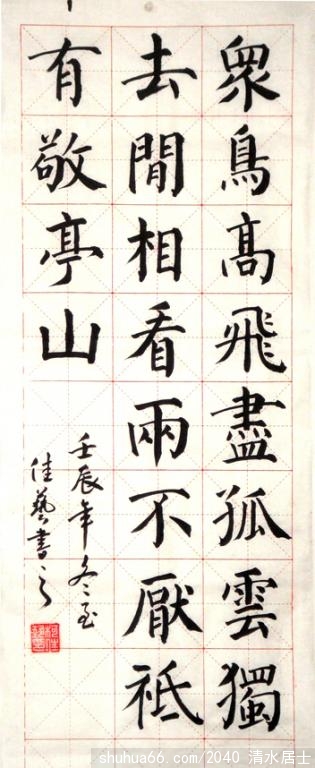 衆鳥髙飛盡孤雲獨
去閒相看兩不厭祗
有敬亭山
壬辰年冬至
佳藝書之
shuhua66.com/2040 清水居士